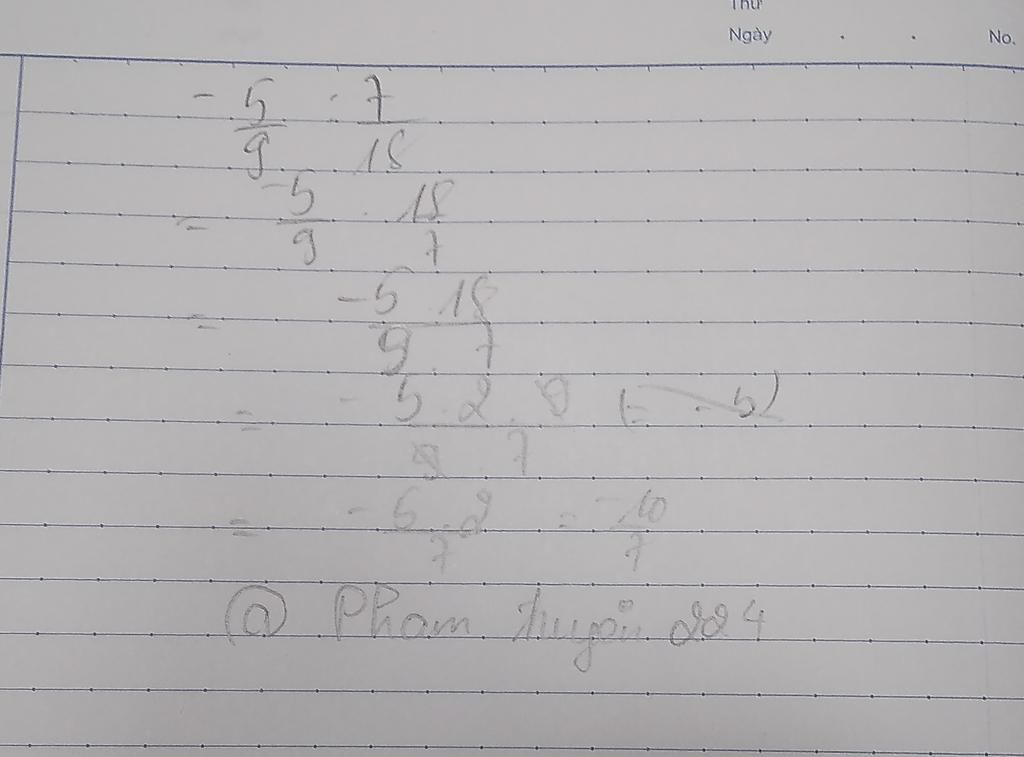 Thứ
Ngày . . No.
- 5/9 : 7/18
= -5/9 . 18/7
= -5.18/9.7
= -5.2.9/9.7
= -5.2/7 = -10/7
@ Pham 224